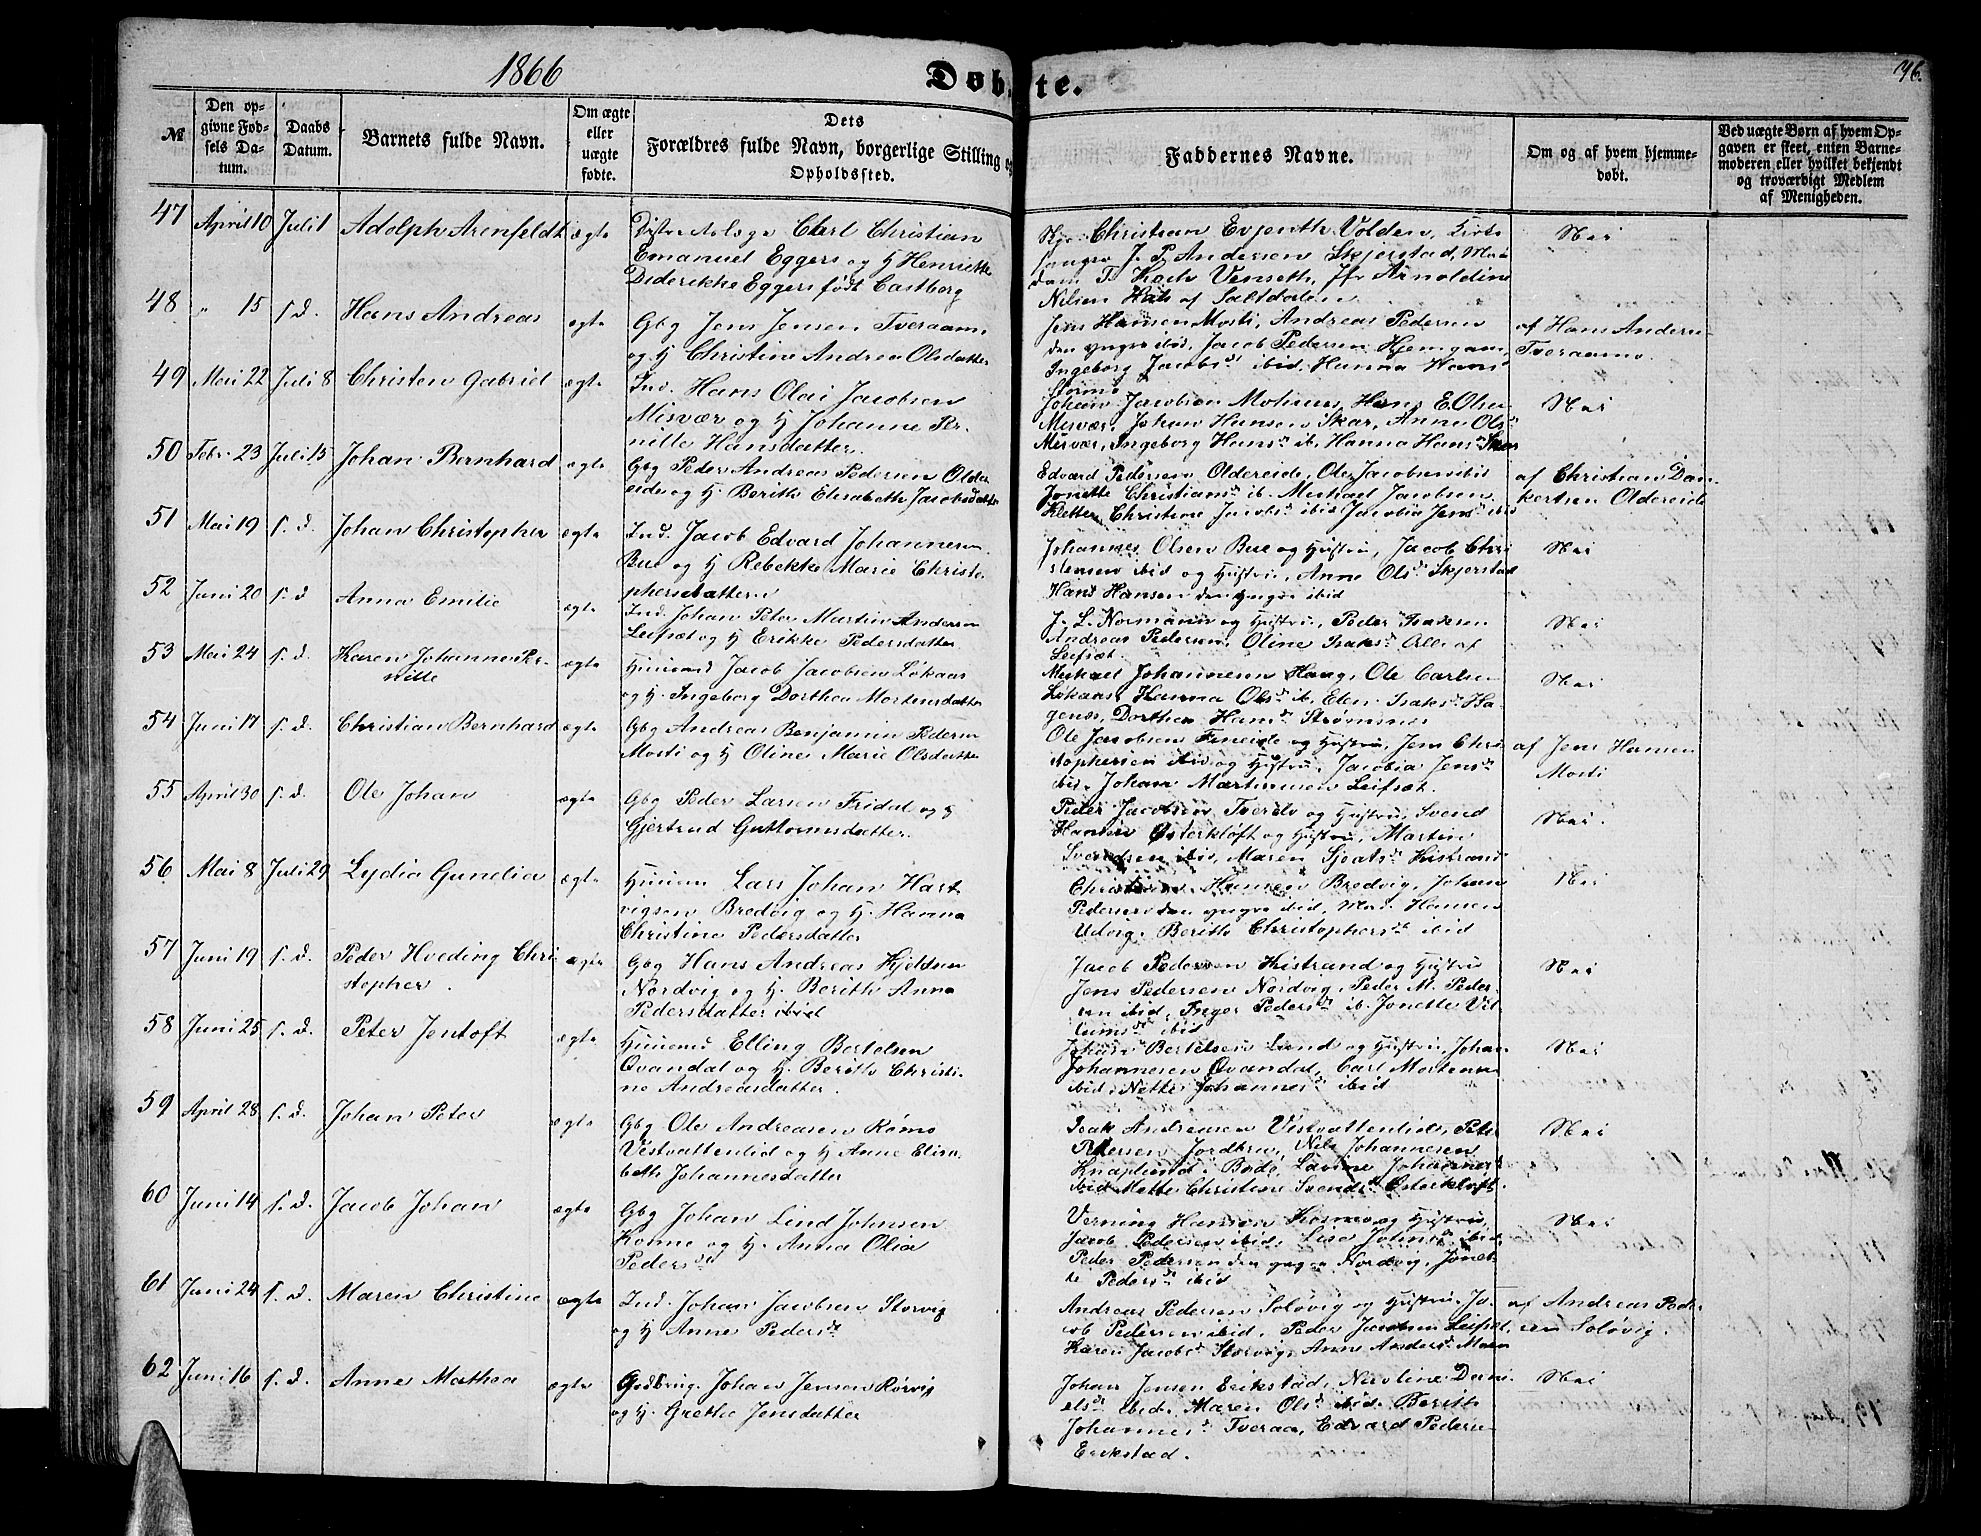 1866
Døbte.
76.
№
Den op-
givne Fød-
sels Da-
tum.
Daabs
Datum.
Barnets fulde Navn.
Om ægte
eller
uægte
fødte.
Dets
Forældres fulde Navn, borgerlige Stilling og
Opholdssted.
Faddernes Navne.
Om og af hvem hjemme-
døbt.
Ved uægte Børn af hvem Op-
gaven er skeet, enten Barne-
moderen eller hvilket bekjendt
og troværdigt Medlem
af Menigheden.
47 April 10 Juli 1 Adolph Arenfeldt ægte
Carl Christian
Emanuel Eggers og H Henriette
Diderikke Eggers født Castberg
Christian Evjenth Volden, Kirke
sanger J. P. Andersen Skjerstad, Ma
dam Venseth, Jfr Arnoldine
Nilsen af Saltdalen
Nei
48 " 15 s. d. Hans Andreas ægte
Gbg Jens Jensen Tveraamo
og H Christine Andrea Olsdatter
Jens Hansen Mosti, Andreas Pedersen
den yngre ibid, Jacob Pedersen Hjemgam,
Ingeborg Jacobsd ibid. Hanna Hansd
Strømsn
af Hans Andersen
Tveraamo.
49 Mai 22 Juli 8 Christen Gabriel ægte
Ind. Hans Olai Jacobsen
Misvær og H Johanne Per-
nille Hansdatter
Johan Jacobsen Mohus, Hans E. Olsen
Misvær, Johan Hansen Skar, Anna Olsd
Misvær, Ingeborg Hansd ib, Hanna Hansd Skar
Nei
50 Febr. 23 Juli 15 Johan Bernhard ægte
Gbg Peder Andreas Pedersen Older
eide og H. Berith Elisabeth Jacobsdatter
Edvard Pedersen Oldereide, Ole Jacobsen ibid
Jonette Christiansd ib. Michael Jacobsen
Kletten Christine Jacobsd ibid Jacobia Jensd ibid
af Christian Dan-
kertsen Oldereide
51 Mai 19 s. d. Johan Christopher ægte
Ind. Jacob Edvard Johannesen
Bue og H Rebekka Marie Christo-
phersdatter
Johannes Olsen Bue og Hustru, Jacob Chri
stensen ibid og Hustru, Anne Olsd Skjerstad
Hans Hansen den yngre ibid
Nei
52 Juni 20 s. d Anna Emilie ægte
Ind. Johan Peter Martin Andersen
Leifset og H Erikke Pedersdatter
J. L. Normann og Hustru, Peder Isaksen
Andreas Pedersen, Oline Isaksd Alle af
Leifset.
Nei
53 Mai 24 s. d. Karen Johanne Per-
nille ægte
Huusmd Jacob Jacobsen Løkaas
og H. Ingeborg Dorthea Mortensdatter
Michael Johannesen Haug, Ole Carlsen
Løkaas, Hanna Olsd ib. Elen Isaksd Ha-
genæs, Dorthea Hansd Strømsnes
Nei
54 Juni 17 s. d. Christian Bernhard ægte
Gbg Andreas Benjamin Pedersen
Mosti og H Oline Marie Olsdatter
Ole Jacobsen Fineide og Hustru, Jens Chri
stophersen ibid og Hustru, Jacobia Jensd
ibid. Johan Martinusen Leifset.
af Jens Hansen
Mosti
55 April 30 s. d. Ole Johan ægte
Gbg Peder Larsen Fridal og H
Gjertrud Guttormsdatter.
Peder Jacobsen Tverelv og Hustru, Svend
Hansen Østerkløft og Hustru, Martin
Svendsen ibid, Maren Kistrand
Nei.
56 Mai 8 Juli 29 Lydia Gunelia ægte
Huusm Lars Johan Hart
vigsen Bredvig og H. Hanna
Christine Pedersdatter
Hansen Bredvig, Johan
Pedersen den yngre ibid, Hansen
Udvig. Berith Christophersd ibid
Nei
57 Juni 19 s. d. Peder Hveding Chri
stopher. ægte
Gbg Hans Andreas Kjeldsen
Nordvig og H. Berith Anna
Pedersdatter ibid
Jacob Pedersen Kistrand og Hustru
Jens Pedersen Nordvig, Peder M. Peder-
sen ibid, Inger Pedersd ib. Jonette Vil
lumsd ibid
Nei
58 Juni 25 s. d. Peter Jentoft ægte
Huusmd Elling Bertelsen
Qvandal og H. Berith Christi-
ne Andreasdatter.
Johan Bertelsen Lund og Hustru, Johan
Johannesen Qvandal, Carl Mortensen
ibid. Nette Johannesd ibid
Nei
59 April 28 s. d. Johan Peter ægte
Gbg Ole Andreasen Rømo
Vestvattenlid og H Anne Elisa
beth Johannesdatter
Isak Andreasen Vestvattenlid, Peter
Petersen Jordbru, Nils Johannesen
Knaplund i Bodø, Lavine Johannesd
ibid Mette Christine Svendsd Østerkløft
Nei
60 Juni 14 s. d. Jacob Johan ægte
Gbg Johan Lind Johnsen
og H. Anna Olia
Pedersd
Verning Hansen og Hustru,
Jacob Pedersen ibid, Lisa Johnsd ibid
Peder Pedersen den yngre Nordvig, Jonet-
te Pedersd ibid
Nei
61 Juni 24 s. d. Maren Christine ægte
Ind. Johan Jacobsen Storvig
og H Anne Pedersd
Andreas Pedersen Soløvig og Hustru, Ja-
cob Pedersen ibid. Peder Jacobsen Leifset,
Karen Jacobsd Storvig, Anne Andersd Moen
af Andreas Peder
sen Soløvig.
62 Juni 16 s. d. Anne Mathea ægte
Gaardbrug. Johan Jensen Rørvig
og H. Grethe Jensdatter
Johan Jensen Erikstad, Nicoline Dani-
elsd ibid. Maren Olsd ibid. Berith
Johannesd Tveraa, Edvard Pedersen
Erikstad.
Nei